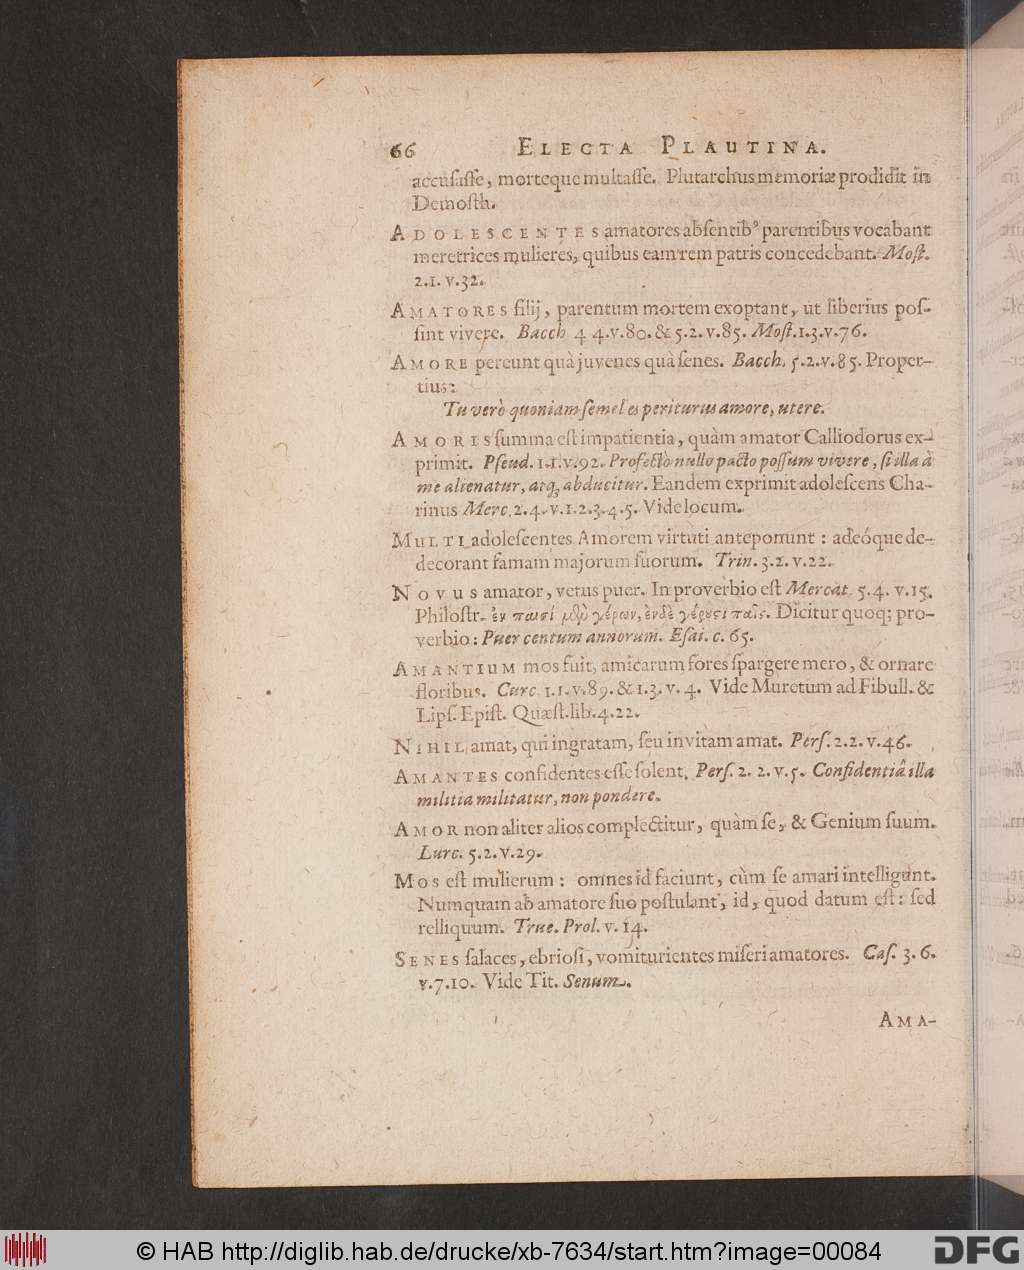 66 ELECTA PLAUTINA.
accusasse, morteque multasse. Plutarchus memoriæ prodidit in
Demosth.
ADOLESCENTES amatores absentibꝰ parentibus vocabant
meretrices mulieres, quibus eam rem patris concedebant. Most.
2.1. v.32.
AMATORES filij, parentum mortem exoptant, ut liberius pos-
sint vivere. Bacch. 4 4.v.80. & 5.2.v.85. Most.1.3.v.76.
AMORE pereunt quà juvenes quà senes. Bacch. 5.2.v.85. Proper-
tius:
Tu verò quoniam semel es periturus amore, utere.
AMORIS summa est impatientia, quàm amator Calliodorus ex-
primit. Pseud. 1.1.v.92. Profectò nullo pacto possum vivere, si illa à
me alienatur, atq; abducitur. Eandem exprimit adolescens Cha-
rinus Merc. 2.4.v.1.2.3.4.5. Vide locum.
MULTI adolescentes Amorem virtuti anteponunt: adeóque de-
decorant famam majorum suorum. Trin. 3.2. v.22.
NOVUS amator, vetus puer. In proverbio est Mercat. 5.4. v.15.
Philostr. ἐν παισί μὲν γέρων, ἐν δὲ γέρουσι παῖς. Dicitur quoq; pro-
verbio: Puer centum annorum. Esai. c. 65.
AMANTIUM mos fuit, amicarum fores spargere mero, & ornare
floribus. Curc. 1.1.v.89. & 1.3. v. 4. Vide Muretum ad Fibull. &
Lips. Epist. Quæst. lib. 4.22.
NIHIL amat, qui ingratam, seu invitam amat. Pers. 2.2. v.46.
AMANTES confidentes esse solent. Pers. 2. 2. v.5. Confidentiâ illa
militia militatur, non pondere.
AMOR non aliter alios complectitur, quàm se, & Genium suum.
Curc. 5.2.v.29.
MOS est mulierum: omnes id faciunt, cùm se amari intelligunt.
Numquam ab amatore suo postulant, id, quod datum est: sed
relliquum. True. Prol. v. 14.
SENES salaces, ebriosi, vomiturientes miseri amatores. Cas. 3. 6.
v.7.10. Vide Tit. Senum.
AMA-
© HAB http://diglib.hab.de/drucke/xb-7634/start.htm?image=00084
DFG